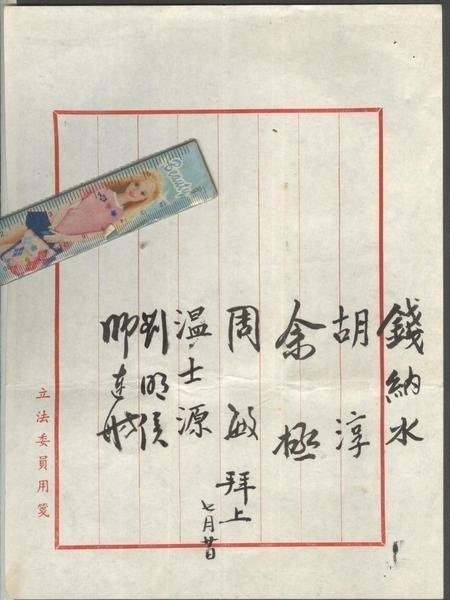 錢納水
胡淳
余
周敏 拜上
七月廿日
溫士源
劉明侯
師連舫
立法委員用箋
Beauty